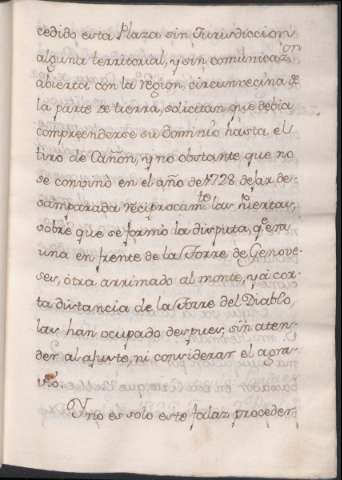 cedido esta Plaza sin Jurisdiccion
alguna territorial, y sin comunicaz.on
abierta con la region, circunvecina de
la parte de tierra, solicitan que debia
comprenderse su dominio hasta el
tiro de Cañon, y no obstante que no
se convino en el año de 1728 dejar de-
samparada reciprocam.te las Huertas,
sobre que se formó la disputa, q.e era
una en frente de la Torre de Genove-
ses, otra arrimado al monte, y á cor-
ta distancia de la Torre del Diablo,
las han ocupado despues, sin aten-
der al ajuste, ni considerar el agra-
vio.
Y no es solo este falaz proceder